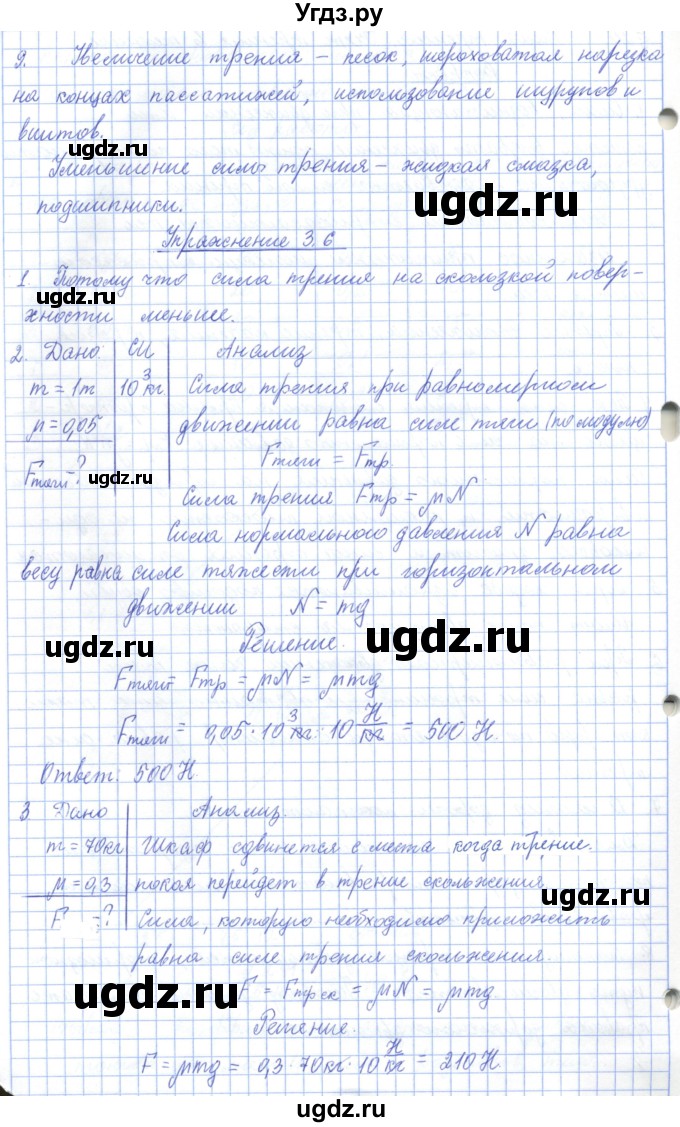 Угдз.ру
9. Увеличение трения – песок, шероховатая нарезка
на концах пассатижей, использование шурупов и
винтов.
ugdz.ru
Уменьшение силы трения – жидкая смазка,
подшипники.
ugdz.ru
Упражнение 3.6
1. Потому что сила трения на скользкой повер-
ugdz.ru
хности меньше.
2. Дано: СИ Анализ
m = 1т 10³ кг Сила трения при равномерном
μ = 0,05 движении равна силе тяги (по модулю)
Fтяги - ? Fтяги = Fтр.
ugdz.ru
Сила трения Fтр = μN
Сила нормального давления N равна
весу равна силе тяжести при горизонтальном
движении N = mg
ugdz.ru ugdz.ru
Решение.
Fтяги = Fтр = μN = μmg
Fтяги = 0,05 · 10³ кг · 10 Н/кг = 500 Н.
ugdz.ru
Ответ: 500 Н.
3 Дано Анализ.
m = 70кг Шкаф сдвинется с места когда трение.
ugdz.ru
μ = 0,3 покоя перейдет в трение скольжения
ugdz.ru
F - ? Сила, которую необходимо приложить
равна силе трения скольжения.
F = Fтр ск = μN = μmg
ugdz.ru
Решение.
F = μmg = 0,3 · 70кг · 10 Н/кг = 210 Н.
ugdz.ru
ugdz.ru